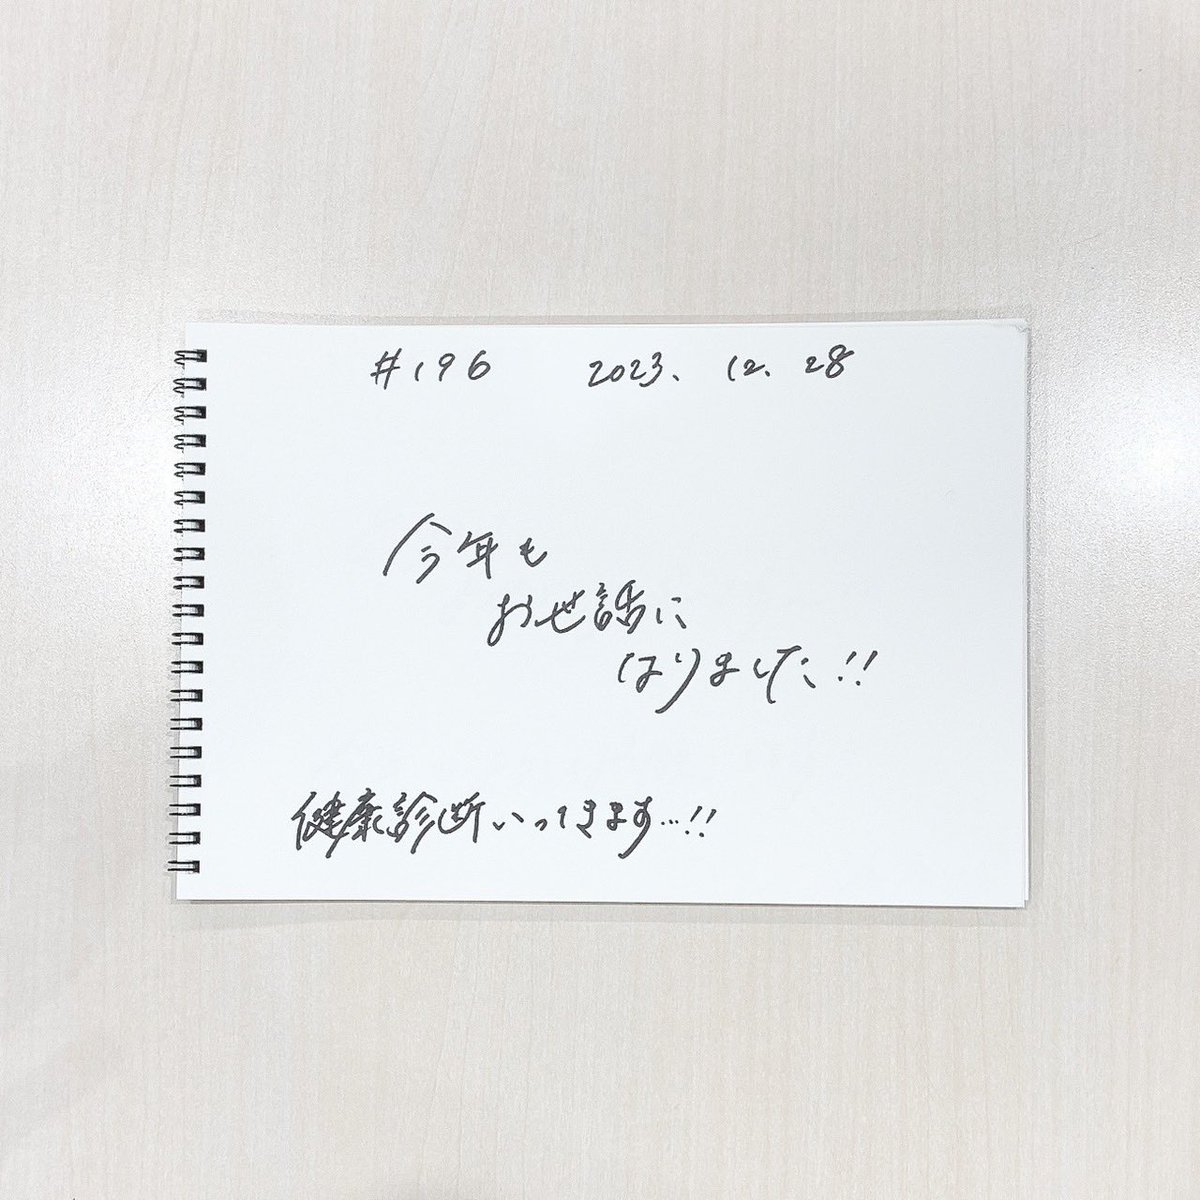 #196 2023. 12. 28
今年も
お世話に
なりました!!
健康診断いってきます…!!